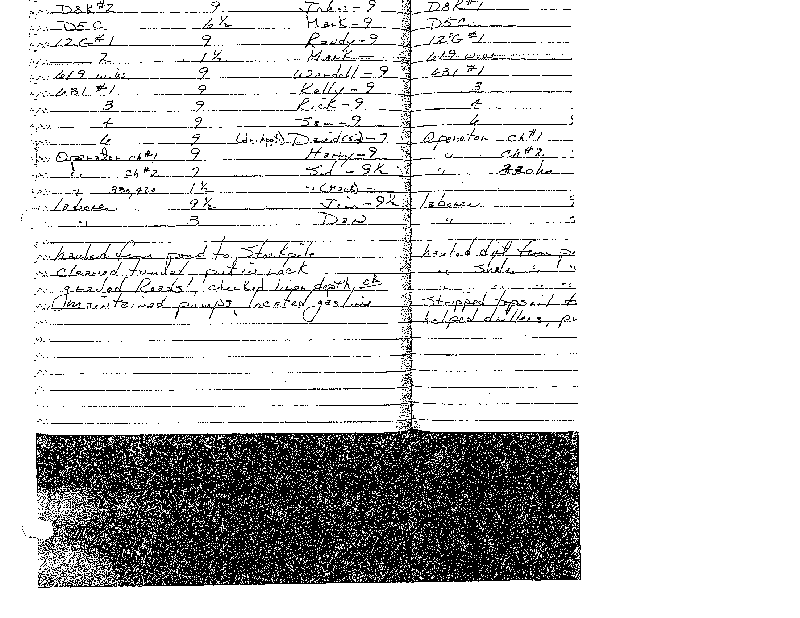 D8K#2 9 John - 9
D5C 6½ Mark - 9
12G#1 9 Randy - 9
2 1½ Mark
619 9 Wendell - 9
631 #1 9 Kelly - 9
3 9 Rick - 9
4 9 - 9
6 9 David(sr) - 7
Operator ch#1 9 Harry - 9
" ch#2 7 Sid - 9½
" 1½ "
laborer 9½ Jim - 9½
" 3 Dan
hauled from pond to Stockpile
cleaned tunnel, put in rock
graded Roads, checked depth
maintained pumps, located gas line
D8K#1
D5C
12G#1
619
631 #1
3
4
6
Operator ch#1
" ch#2
"
laborer
"
hauled dirt from
" Shale " "
" " "
Stripped topsoil
helped drillers,